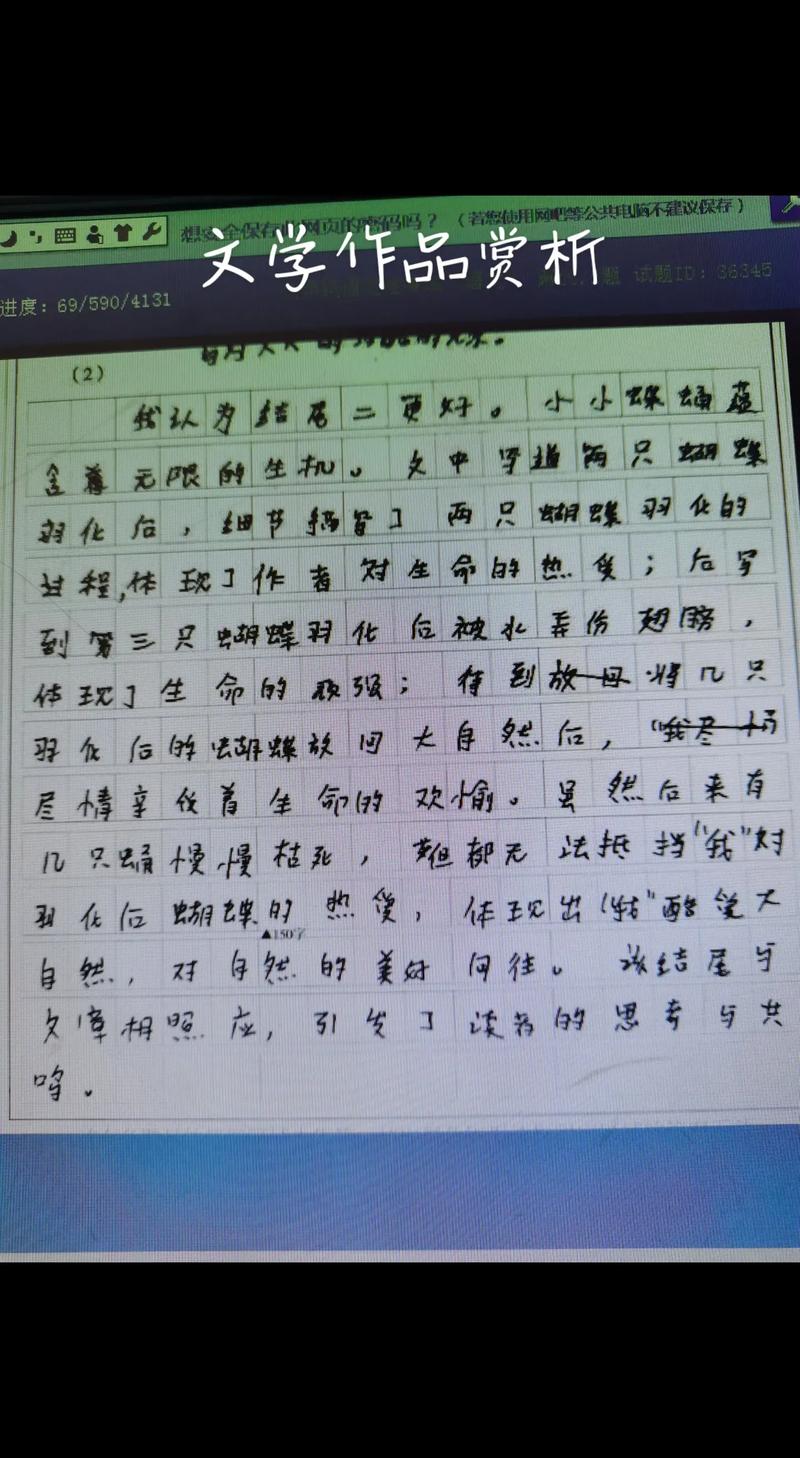 想安全保存此网页的密码吗？（若您使用网吧等公共电脑不建议保存）
文学作品赏析
进度：69/590/4131
题 试题ID：36345
（2）
我认为结尾二更好。小小蝶蛹蕴
含着无限的生机。文中写道两只蝴蝶
羽化后，细节描写了两只蝴蝶羽化的
过程，体现了作者对生命的热爱；后写
到第三只蝴蝶羽化后被水弄伤翅膀，
体现了生命的顽强；待到将几只
羽化后的蝴蝶放回大自然后，"我
尽情享受着生命的欢愉。虽然后来有
几只蛹慢慢枯死，但都无法抵挡"我"对
羽化后蝴蝶的热爱，体现出"我"酷爱大
▲150字
自然，对自然的美好向往。该结尾与
文章相照应，引发了读者的思考与共
鸣。